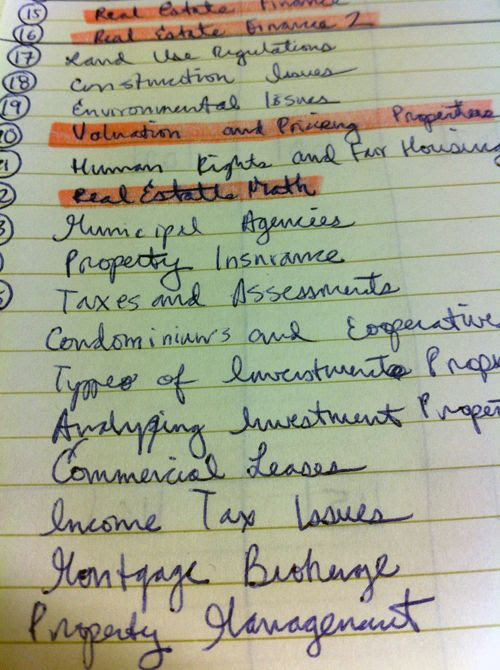 15 Real Estate Finance
16 Real Estate Finance 2
17 Land Use Regulations
18 Construction Issues
19 Environmental Issues
20 Valuation and Pricing Properties
21 Human Rights and Fair Housing
2 Real Estate Math
3 Municipal Agencies
Property Insurance
5 Taxes and Assessments
Condominium's and Cooperative
Types of Investment Prope
Analyzing Investment Proper
Commercial Leases
Income Tax Issues
Mortgage Brokerage
Property Management